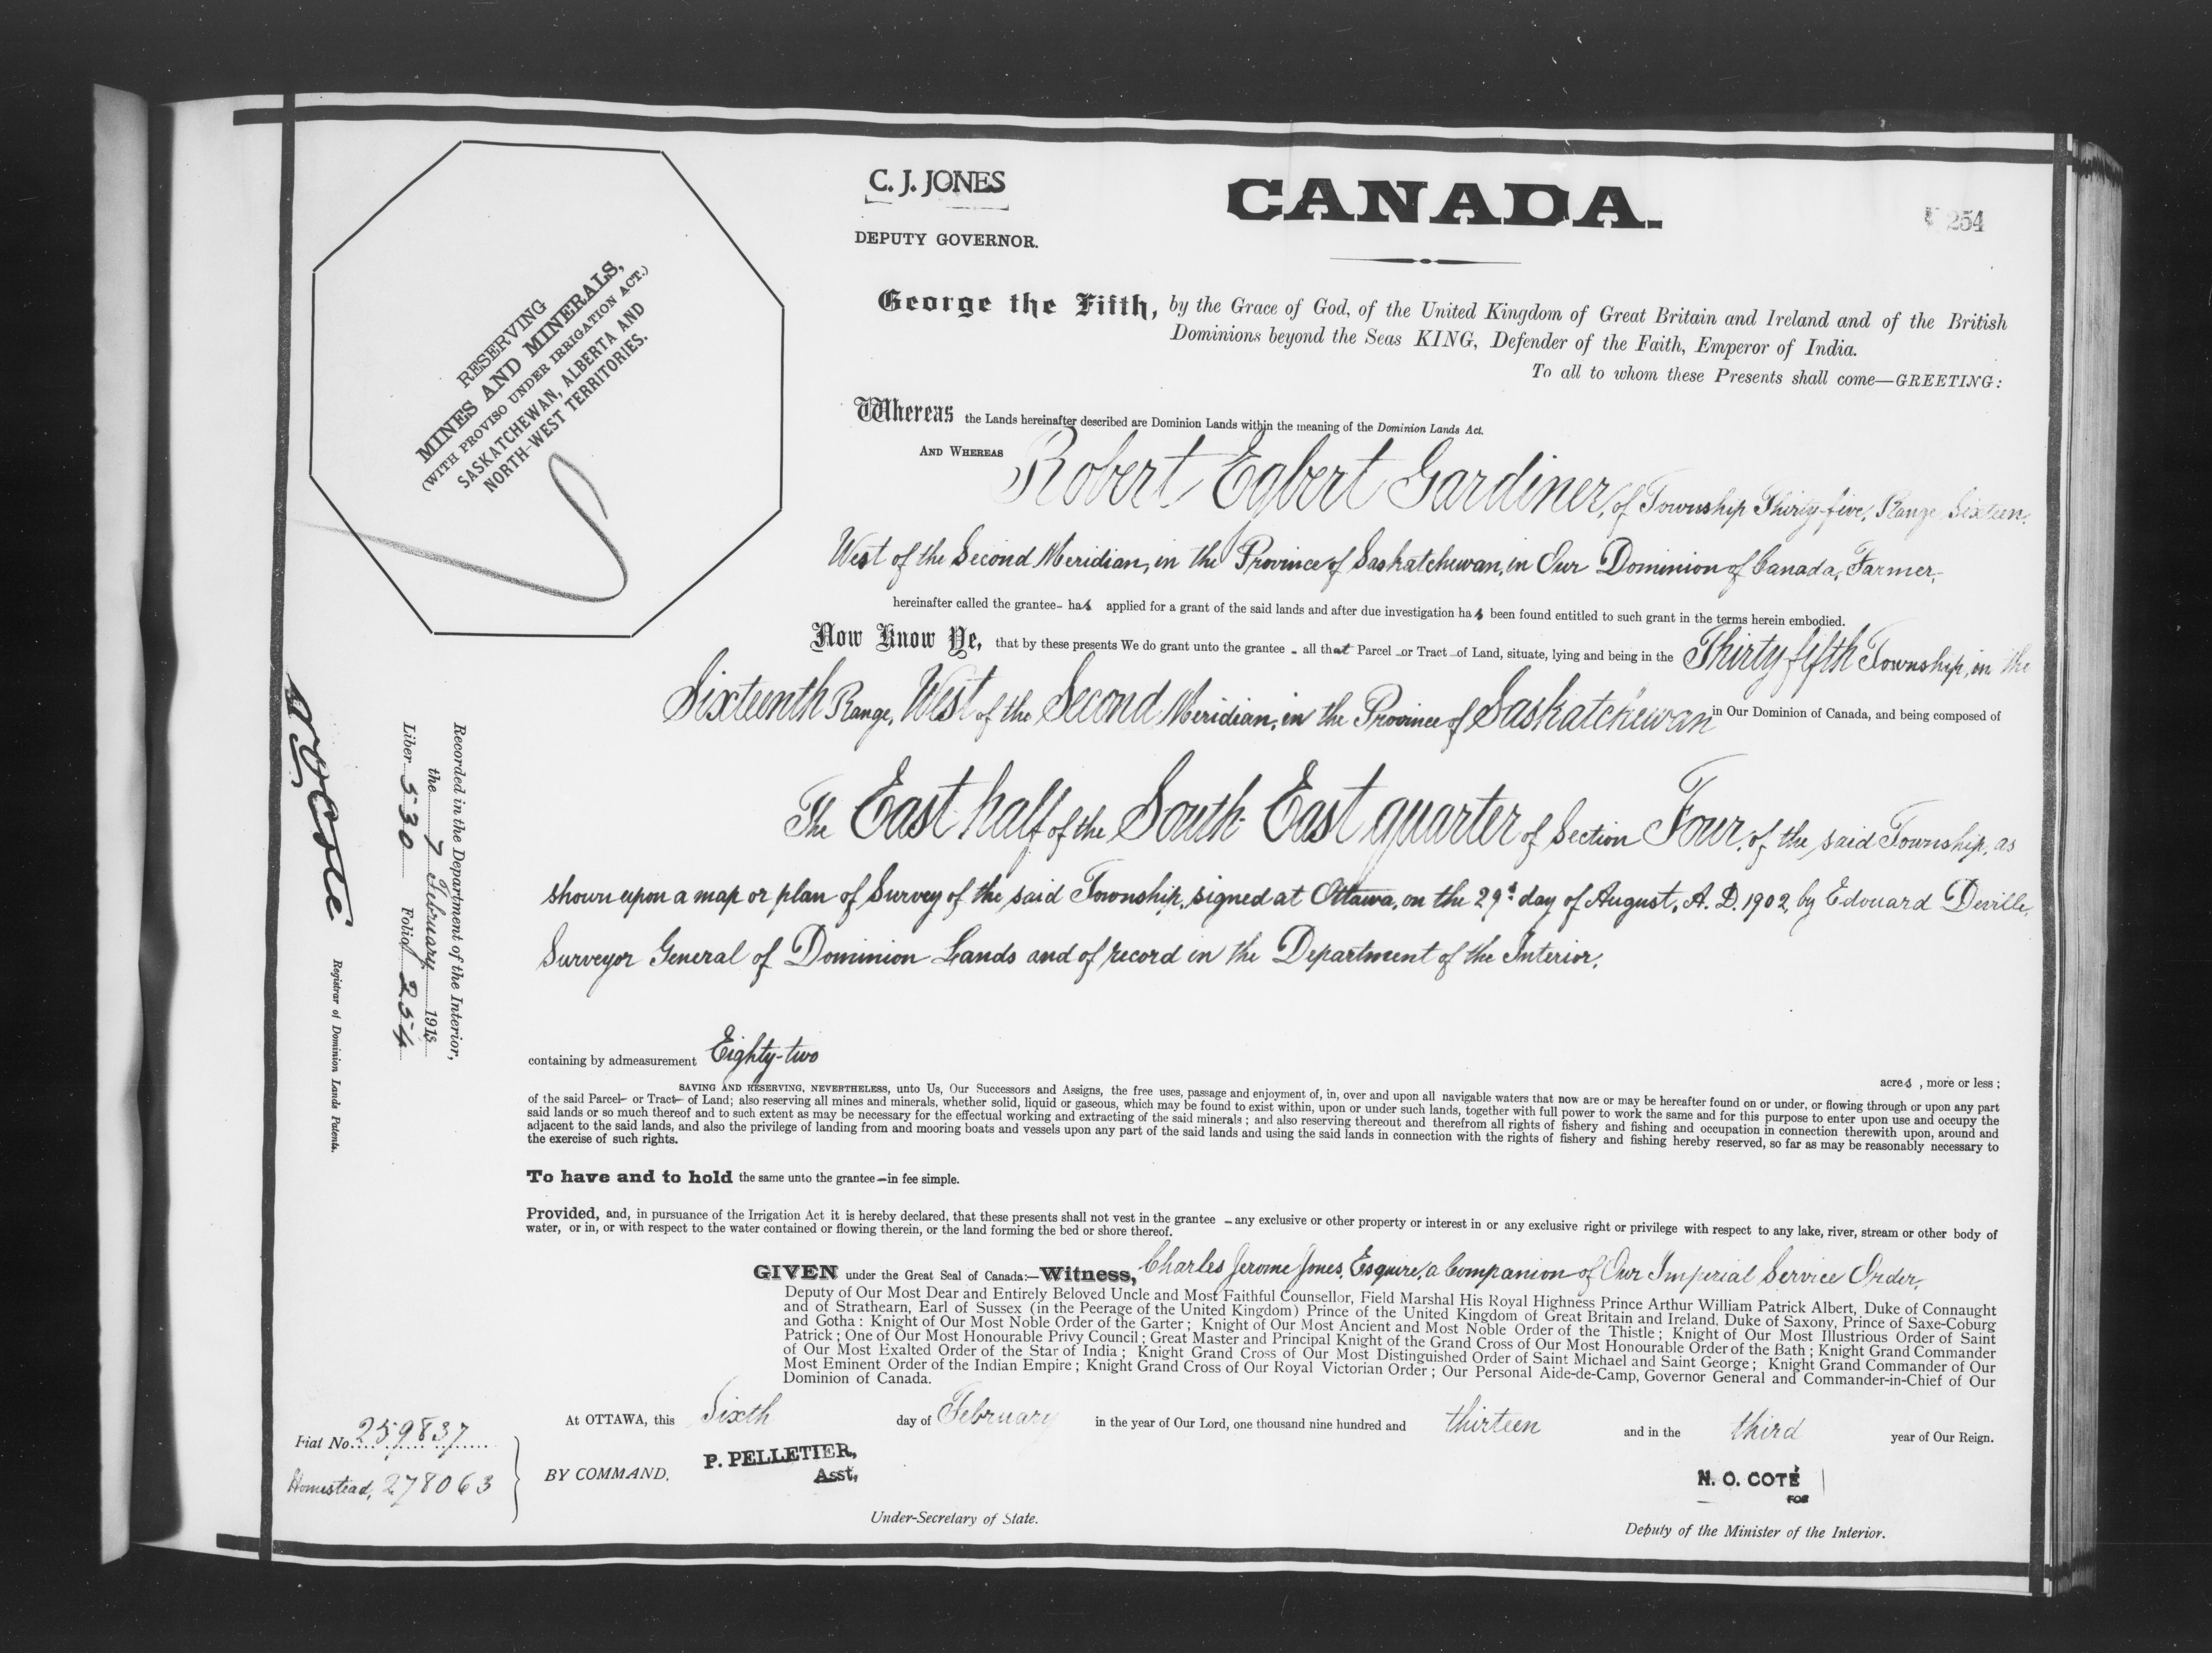 C. J. JONES
DEPUTY GOVERNOR.
CANADA.
254
RESERVING
MINES AND MINERALS,
(WITH PROVISO UNDER IRRIGATION ACT.)
SASKATCHEWAN, ALBERTA AND
NORTH-WEST TERRITORIES.
George the Fifth, by the Grace of God, of the United Kingdom of Great Britain and Ireland and of the British
Dominions beyond the Seas KING, Defender of the Faith, Emperor of India.
To all to whom these Presents shall come—GREETING:
Whereas the Lands hereinafter described are Dominion Lands within the meaning of the Dominion Lands Act.
AND WHEREAS Robert Egbert Gardiner, of Township Thirty-five, Range Sixteen,
West of the Second Meridian, in the Province of Saskatchewan, in Our Dominion of Canada, Farmer,
hereinafter called the grantee- has applied for a grant of the said lands and after due investigation has been found entitled to such grant in the terms herein embodied.
Now Know Ye, that by these presents We do grant unto the grantee - all that Parcel or Tract of Land, situate, lying and being in the Thirty fifth Township, in the
Sixteenth Range, West of the Second Meridian, in the Province of Saskatchewan in Our Dominion of Canada, and being composed of
The East half of the South East quarter of Section Four, of the said Township, as
shown upon a map or plan of Survey of the said Township, signed at Ottawa, on the 29th day of August, A. D. 1902, by Edouard Deville,
Surveyor General of Dominion Lands and of record in the Department of the Interior,
containing by admeasurement Eighty-two
acres, more or less;
SAVING AND RESERVING, NEVERTHELESS, unto Us, Our Successors and Assigns, the free uses, passage and enjoyment of, in, over and upon all navigable waters that now are or may be hereafter found on or under, or flowing through or upon any part
of the said Parcel- or Tract- of Land; also reserving all mines and minerals, whether solid, liquid or gaseous, which may be found to exist within, upon or under such lands, together with full power to work the same and for this purpose to enter upon use and occupy the
said lands or so much thereof and to such extent as may be necessary for the effectual working and extracting of the said minerals; and also reserving thereout and therefrom all rights of fishery and fishing and occupation in connection therewith upon, around and
adjacent to the said lands, and also the privilege of landing from and mooring boats and vessels upon any part of the said lands and using the said lands in connection with the rights of fishery and fishing hereby reserved, so far as may be reasonably necessary to
the exercise of such rights.
To have and to hold the same unto the grantee—in fee simple.
Provided, and, in pursuance of the Irrigation Act it is hereby declared, that these presents shall not vest in the grantee - any exclusive or other property or interest in or any exclusive right or privilege with respect to any lake, river, stream or other body of
water, or in, or with respect to the water contained or flowing therein, or the land forming the bed or shore thereof.
GIVEN under the Great Seal of Canada:—Witness, Charles Jerome Jones, Esquire, a Companion of Our Imperial Service Order,
Deputy of Our Most Dear and Entirely Beloved Uncle and Most Faithful Counsellor, Field Marshal His Royal Highness Prince Arthur William Patrick Albert, Duke of Connaught
and of Strathearn, Earl of Sussex (in the Peerage of the United Kingdom) Prince of the United Kingdom of Great Britain and Ireland, Duke of Saxony, Prince of Saxe-Coburg
and Gotha: Knight of Our Most Noble Order of the Garter; Knight of Our Most Ancient and Most Noble Order of the Thistle; Knight of Our Most Illustrious Order of Saint
Patrick; One of Our Most Honourable Privy Council; Great Master and Principal Knight of the Grand Cross of Our Most Honourable Order of the Bath; Knight Grand Commander
of Our Most Exalted Order of the Star of India; Knight Grand Cross of Our Most Distinguished Order of Saint Michael and Saint George; Knight Grand Commander of Our
Most Eminent Order of the Indian Empire; Knight Grand Cross of Our Royal Victorian Order; Our Personal Aide-de-Camp, Governor General and Commander-in-Chief of Our
Dominion of Canada.
At OTTAWA, this Sixth day of February in the year of Our Lord, one thousand nine hundred and thirteen and in the third year of Our Reign.
BY COMMAND, P. PELLETIER,
Asst,
Under-Secretary of State.
N. O. COTÉ
FOR
Deputy of the Minister of the Interior.
Fiat No. 259837
Homestead, 278063
Recorded in the Department of the Interior,
the 7 February 1913
Liber 530 Folio 254
N O Coté
Registrar of Dominion Lands Patents.